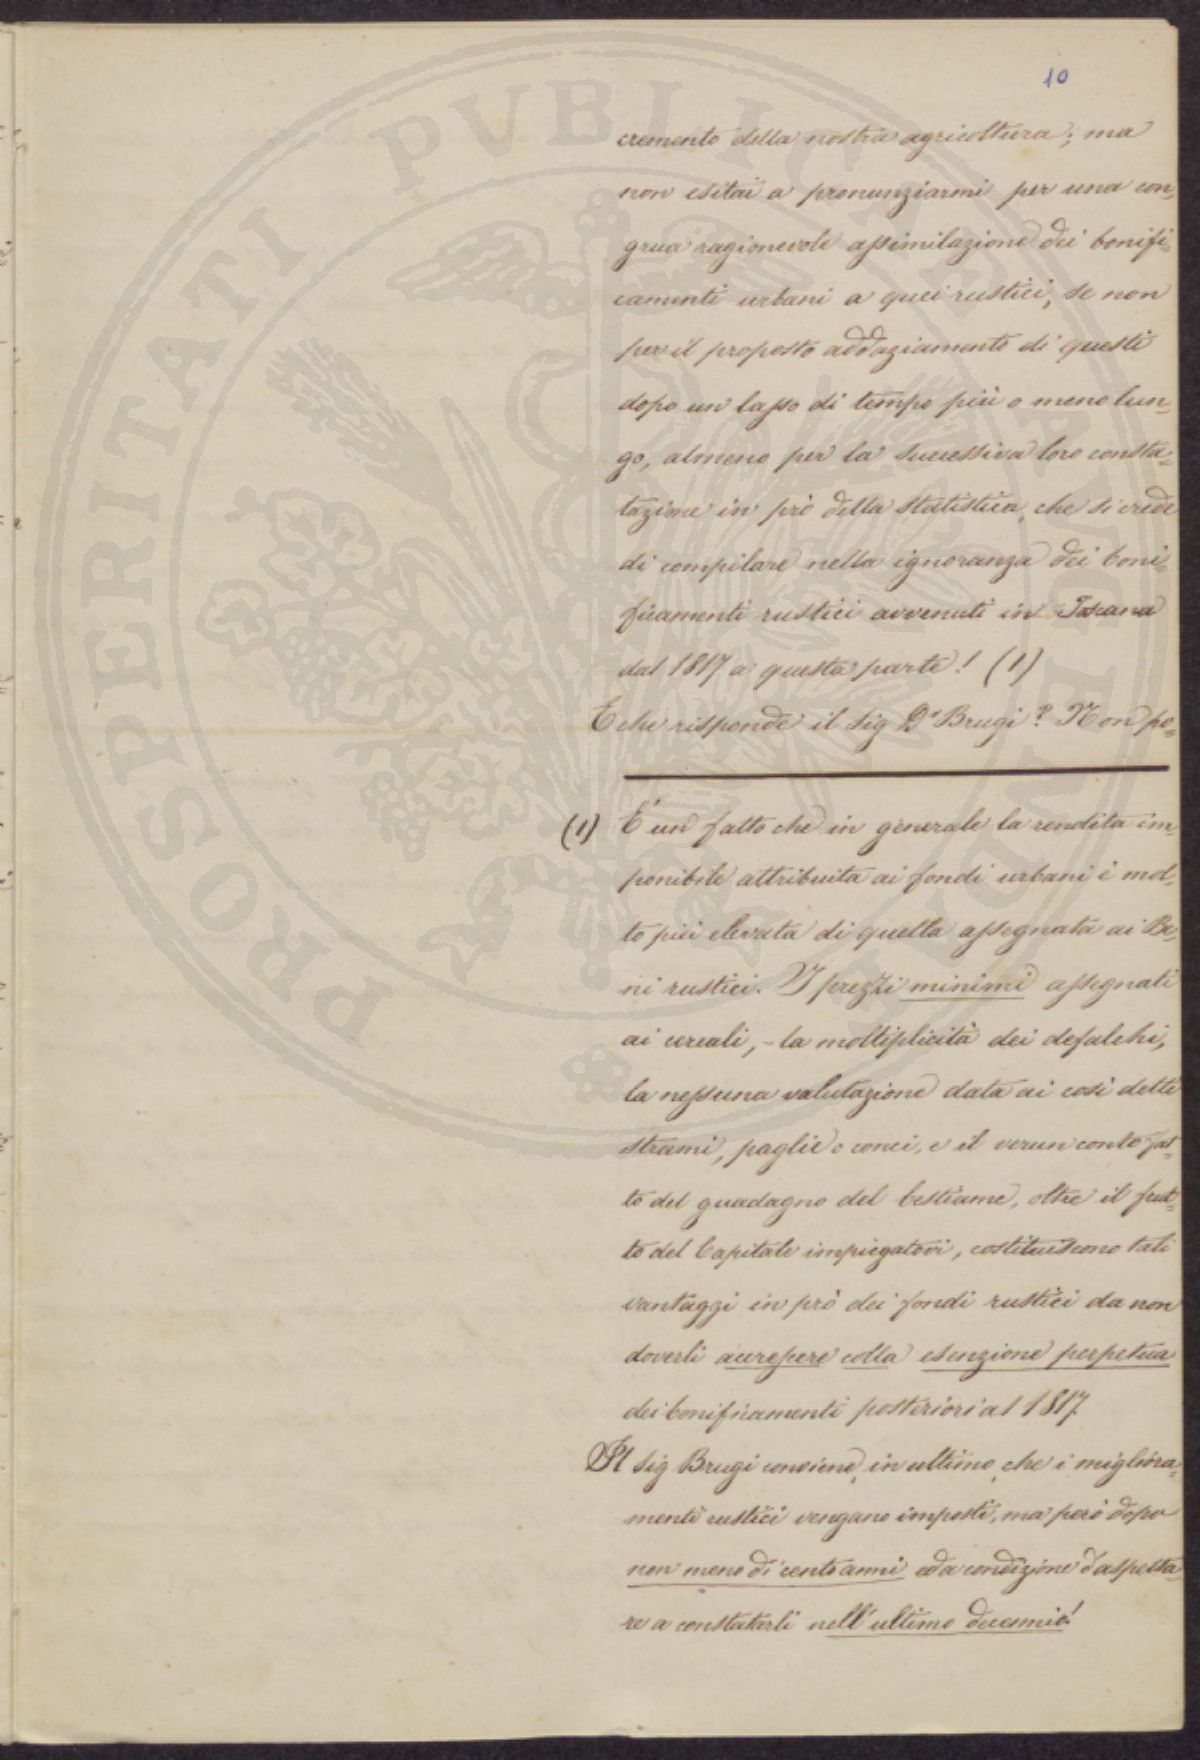 10
cremento della nostra agricoltura; ma
non esitai a pronunziarmi per una con-
grua ragionevole assimilazione dei bonifi-
camenti urbani a quei rustici, se non
per il proposto addaziamento di questi
dopo un lasso di tempo più o meno lun-
go, almeno per la successiva loro consta-
tazione in prò della statistica, che si crede
di compilare nella ignoranza dei boni-
ficamenti rustici avvenuti in Toscana
dal 1817 a questa parte! (1)
E che risponde il Sig Dr Brugi? Non po-
(1) E' un fatto che in generale la rendita im-
ponibile attribuita ai fondi urbani è mol-
to più elevata di quella assegnata ai Be-
ni rustici. I prezzi minimi assegnati
ai cereali, - la moltiplicità dei defalchi,
la nessuna valutazione data ai così detti
strami, paglie o conci, e il verun conto fat-
to del guadagno del bestiame, oltre il frut-
to del Capitale impiegatovi, costituiscono tali
vantaggi in prò dei fondi rustici da non
doverli accrescere colla esenzione perpetua
dei bonificamenti posteriori al 1817
Il Sig Brugi conviene, in ultimo, che i migliora-
menti rustici vengano imposti, ma però dopo
non meno di cento anni ed a condizione d'aspetta-
re a constatarli nell'ultimo decennio!
PROSPERITATI PUBLICAE AUGENDAE